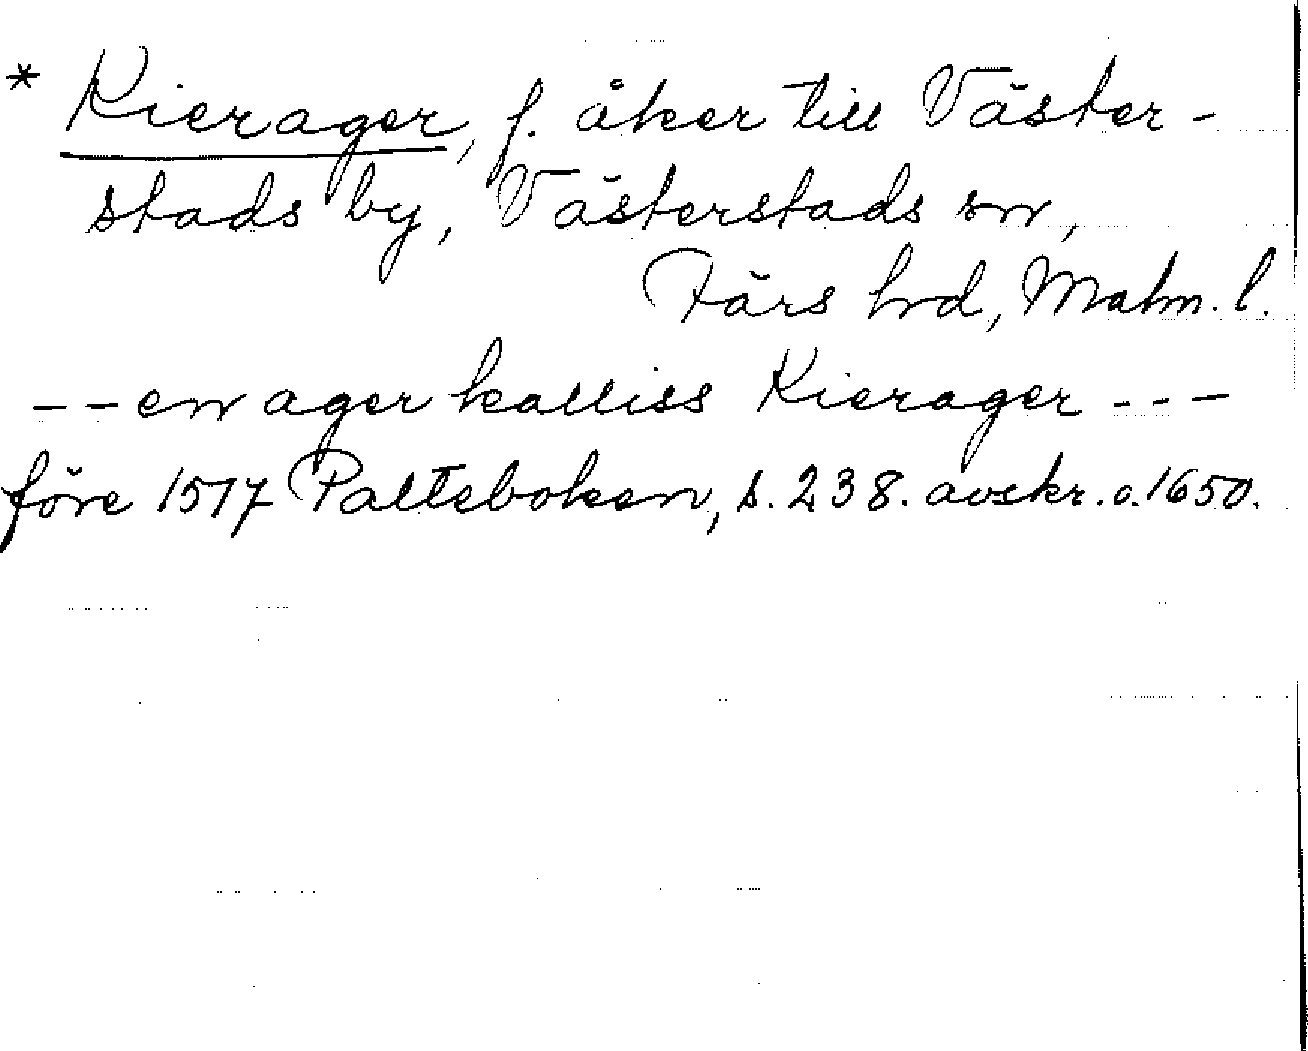 * Kierager, f. åker till Väster-
stads by, Västerstads sn,
Färs hrd, Malm. l.
-- en ager kalliss Kierager ---
före 1517 Palteboken, s. 238. avskr. c. 1650.